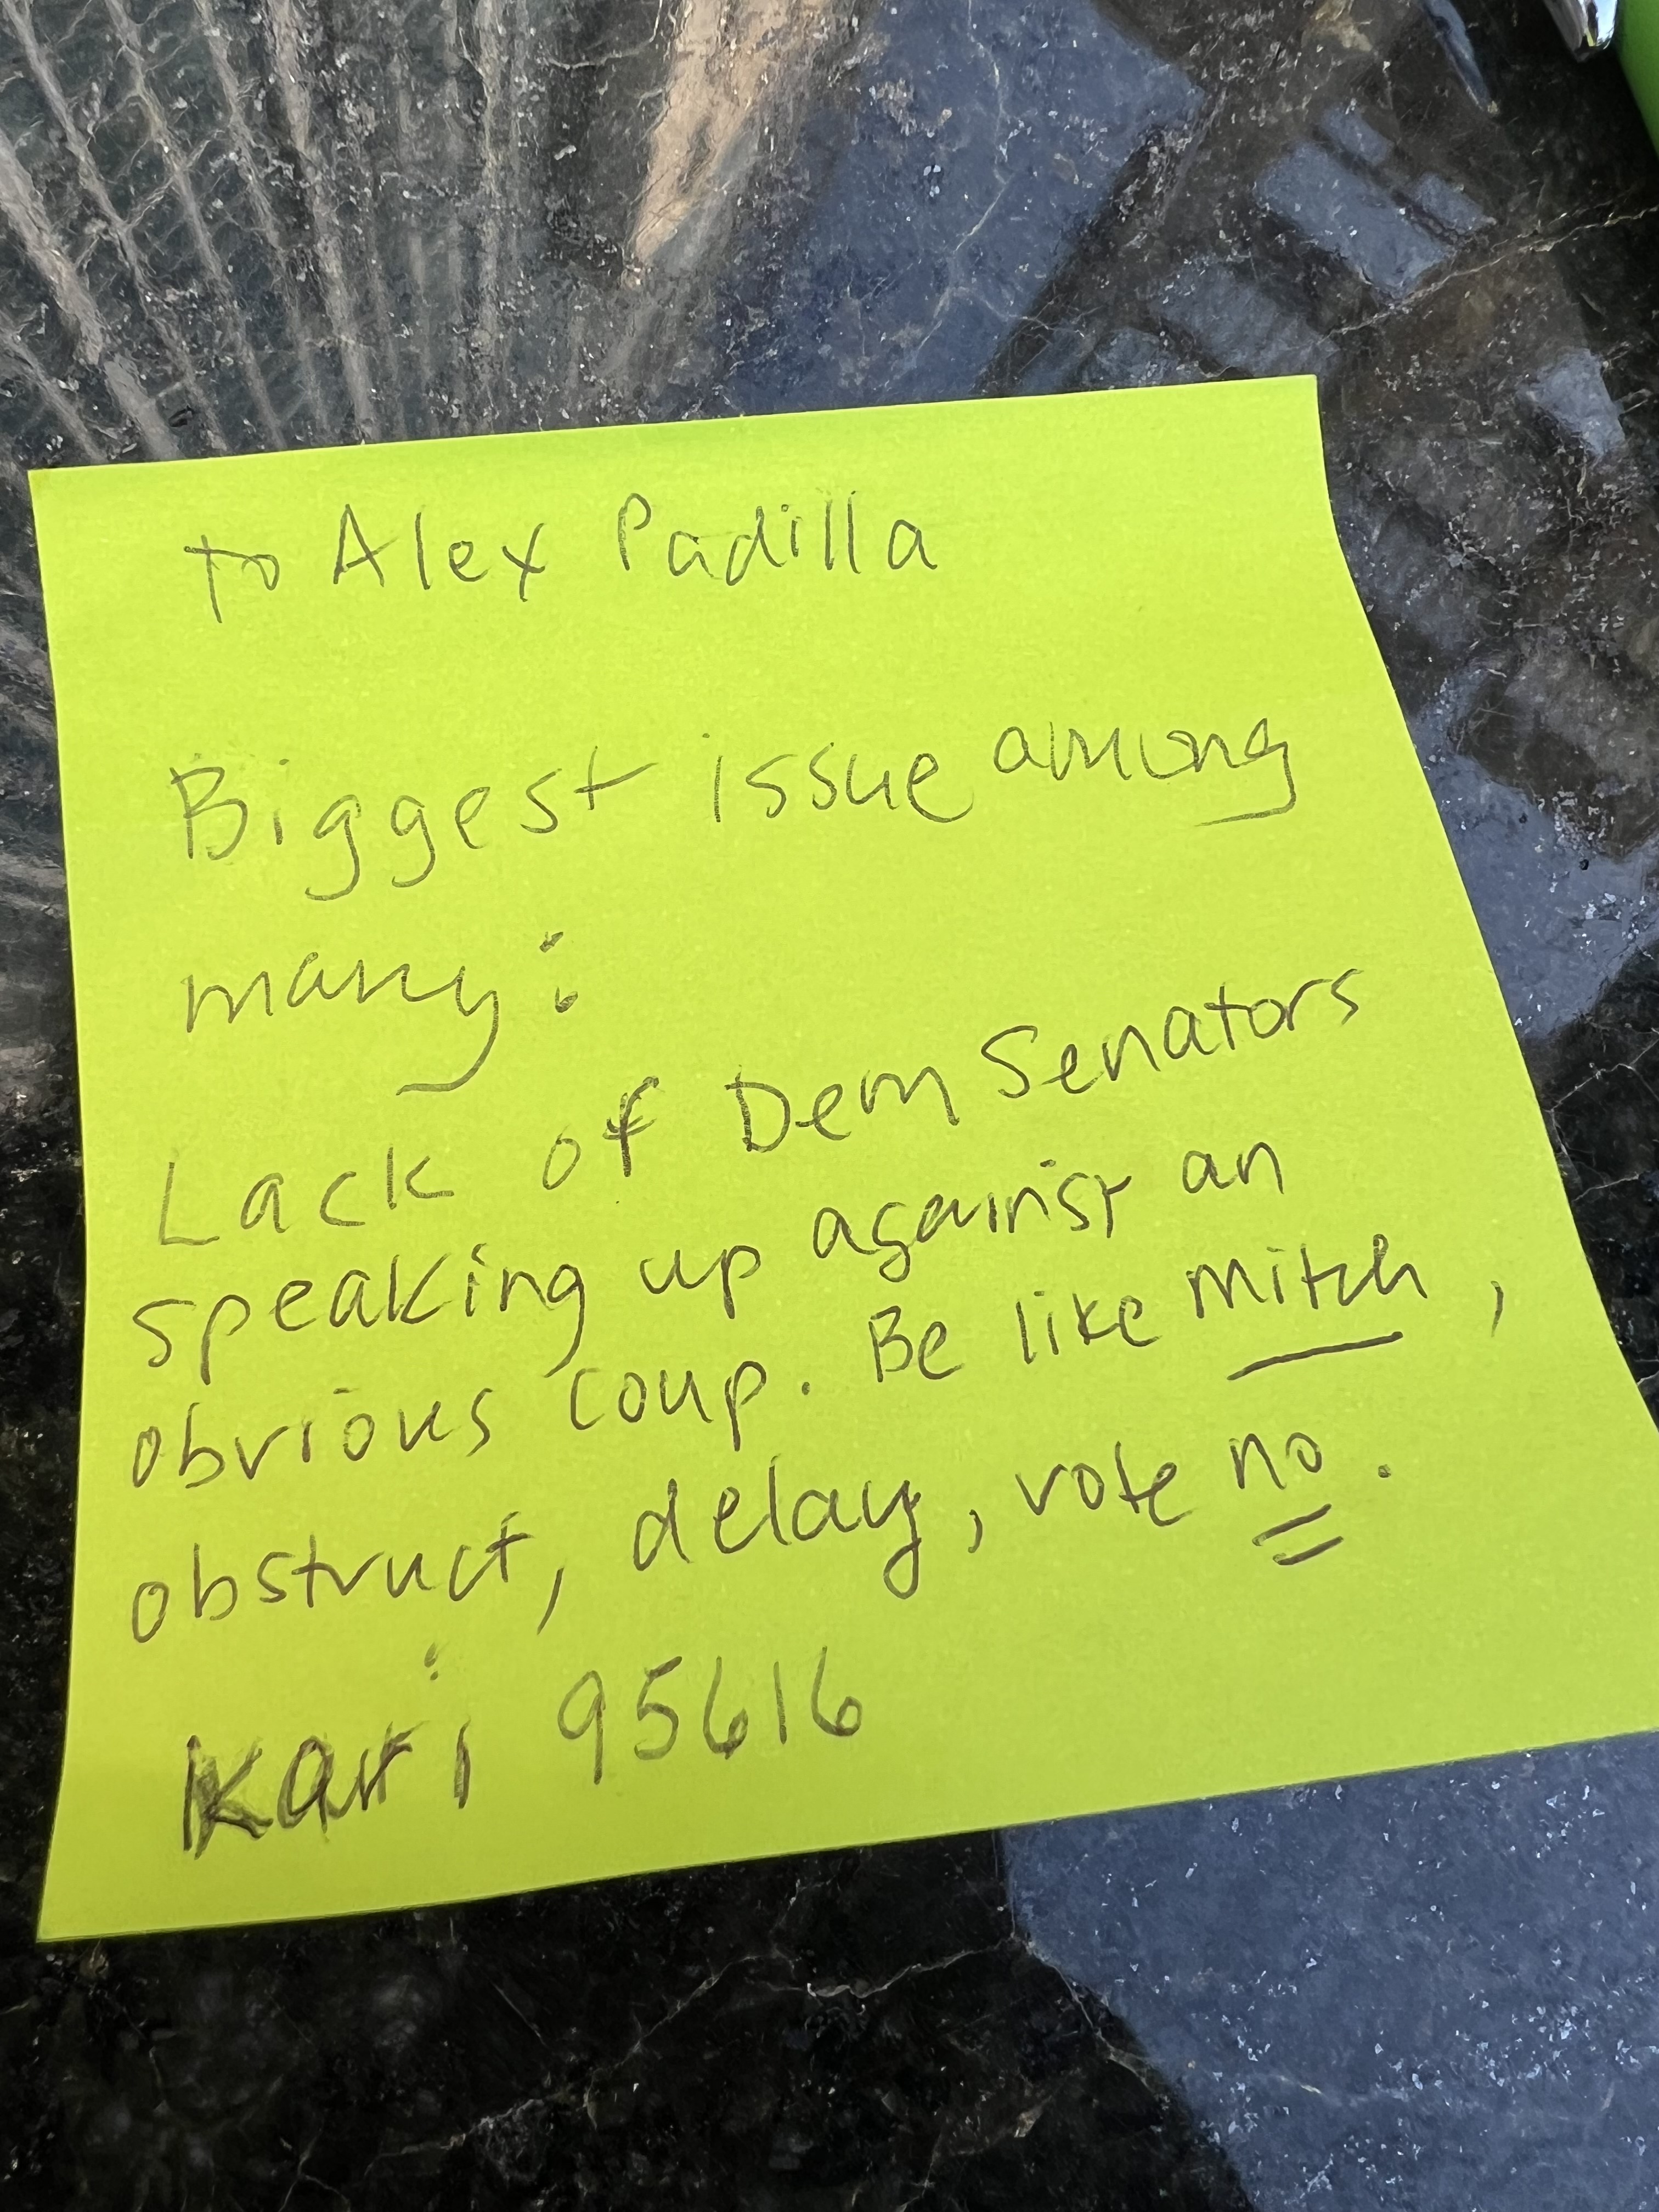 to Alex Padilla
Biggest issue among
many:
Lack of Dem Senators
speaking up against an
obvious coup. Be like Mitch,
obstruct, delay, vote no.
Kari 95616